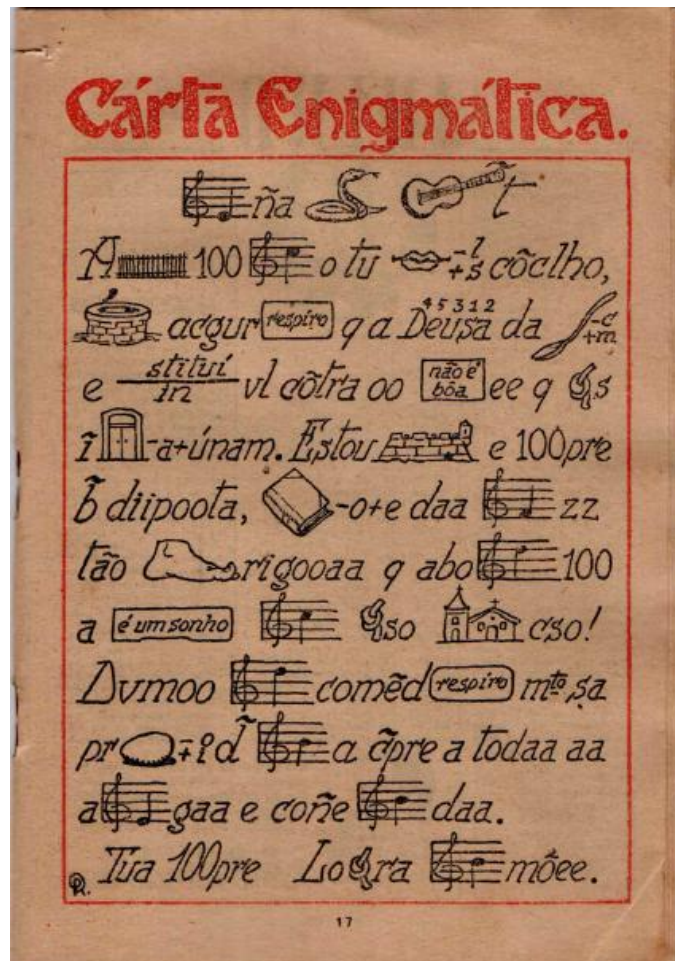 Cárta Enigmática.
ña t̃
A 100 o tu -l +s cõelho,
acgur respiro q a Deusa da -c +m
4 5 3 1 2
e stituí in vl cõtra oo não é bôa ee q s
ĩ -a+únam. Estou e 100pre
b̃ diipoota, -o+e daa zz
tão rigooaa q abo 100
a é um sonho so cso!
Dvmoo comẽd respiro mto sa
pr d̃ a c̃pre a todaa aa
a gaa e coñe daa.
Tua 100pre Lo ra mõee.
17